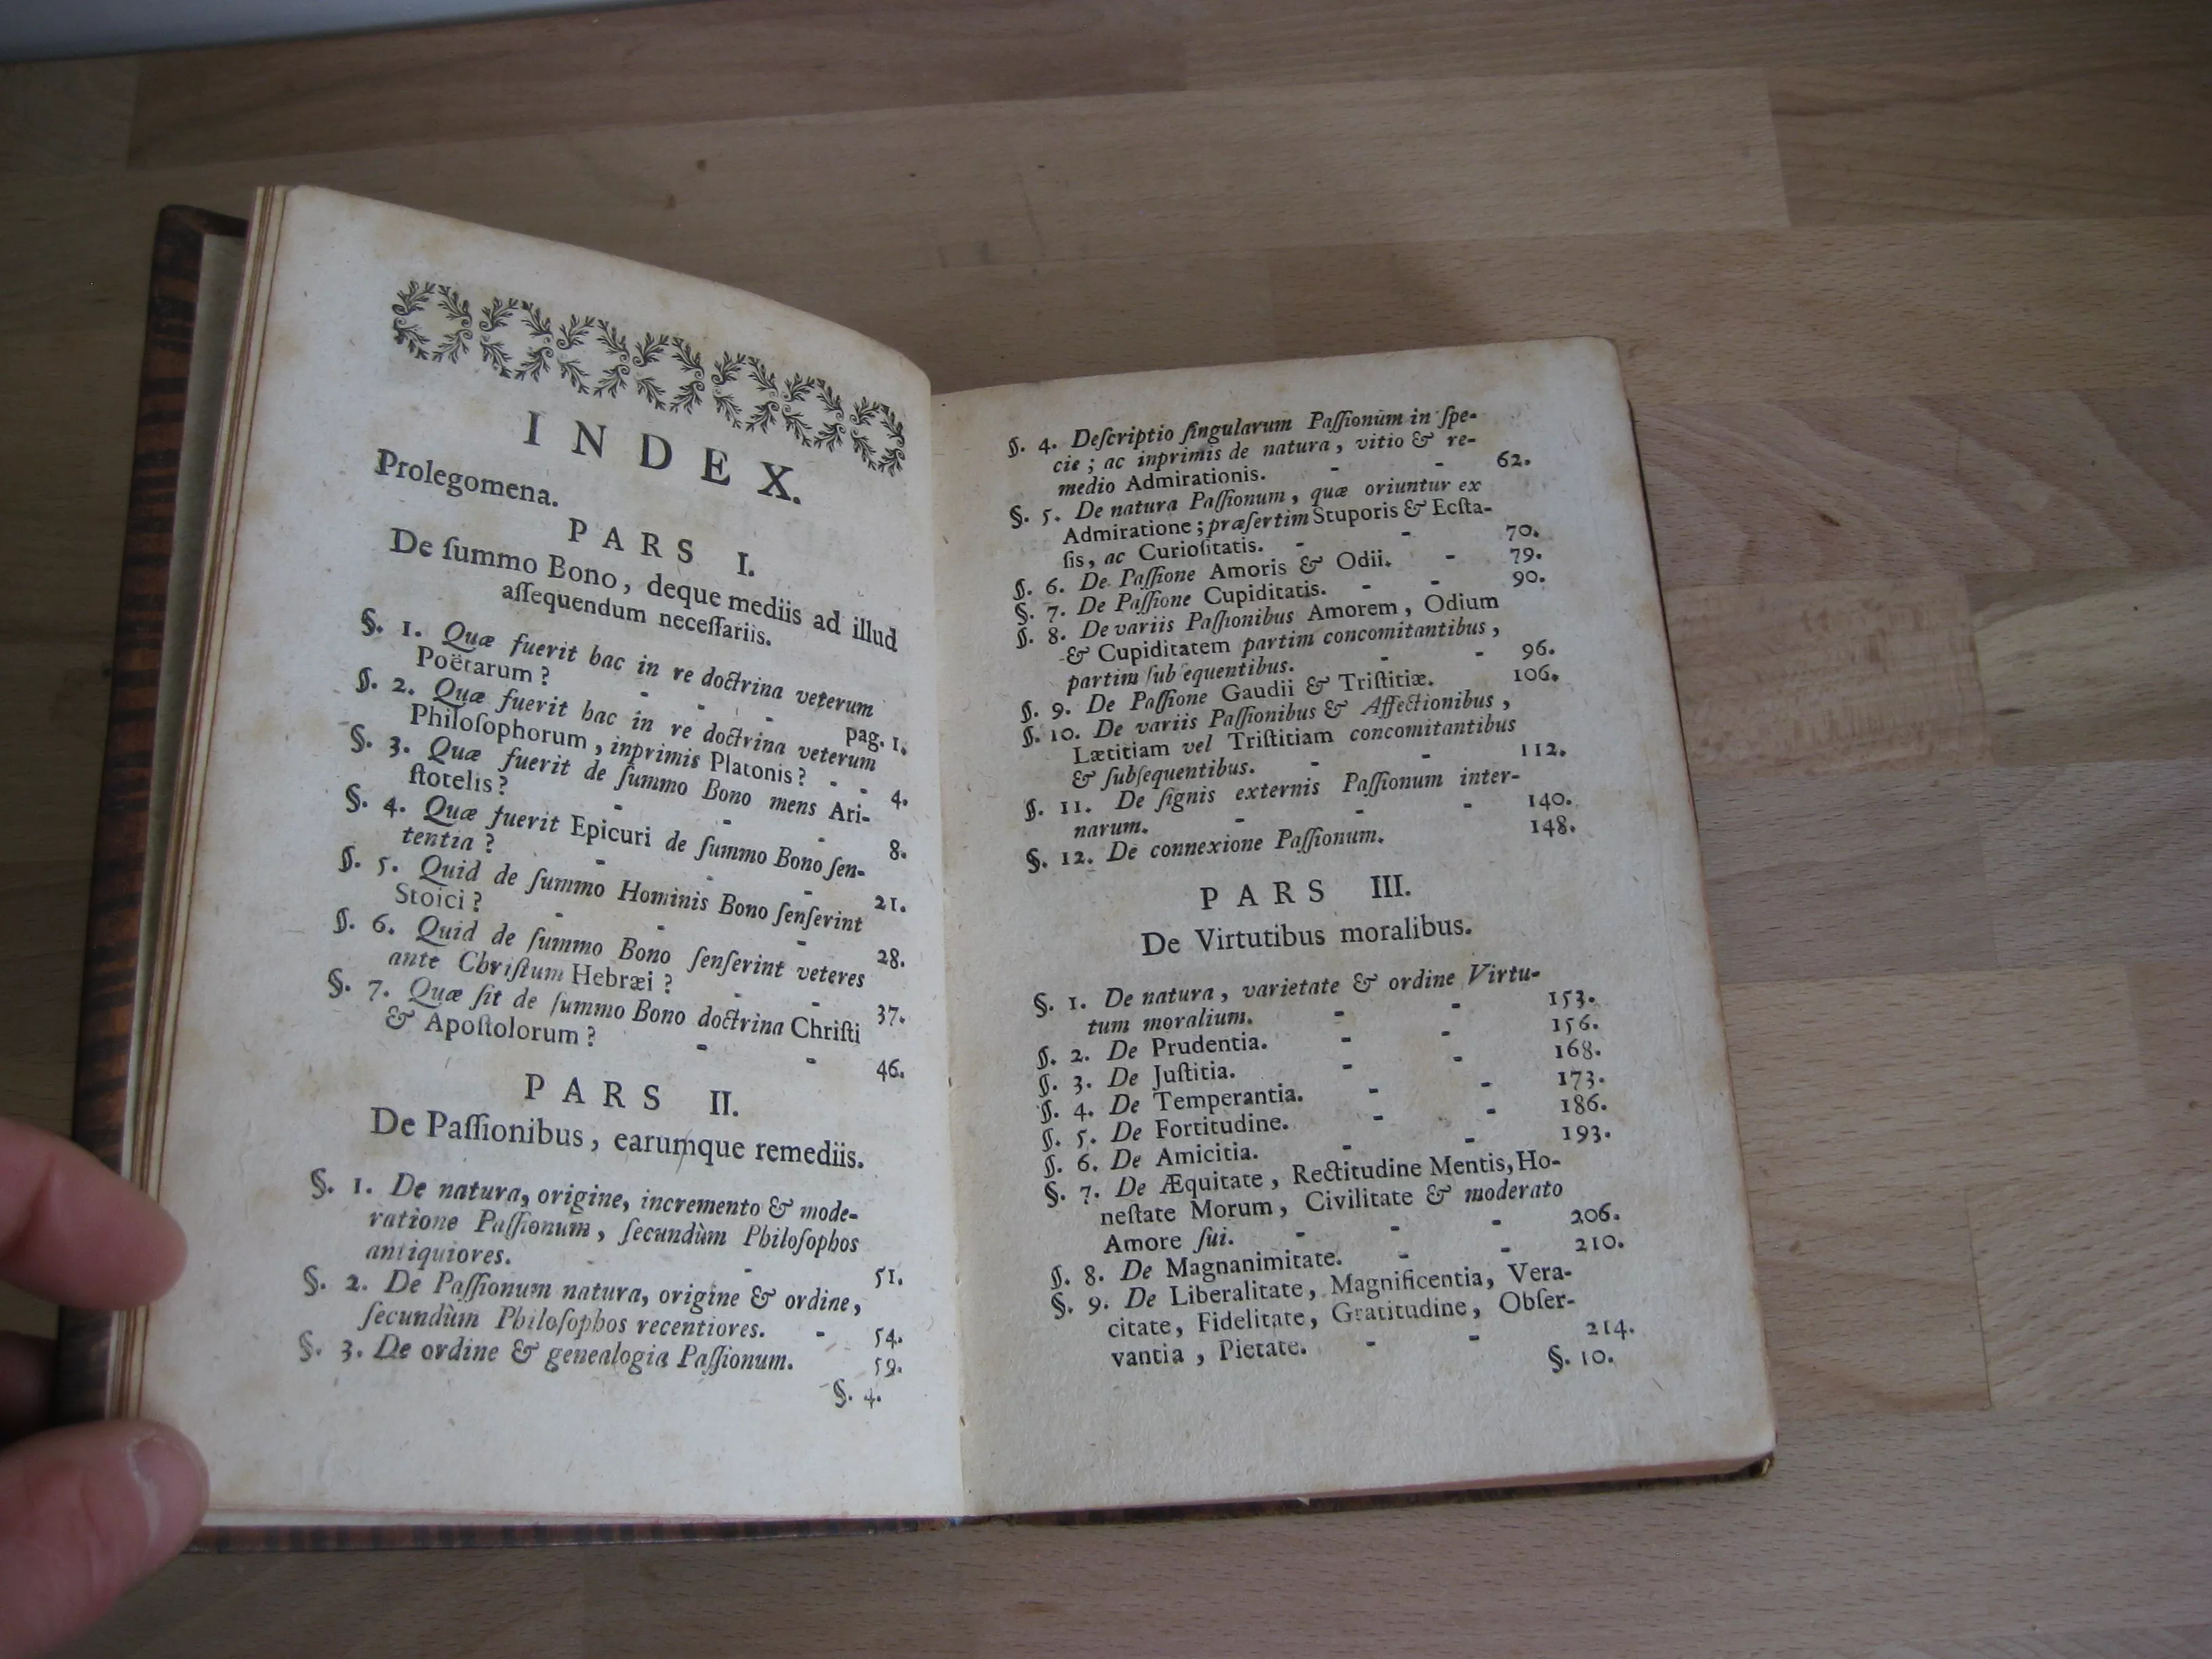 INDEX.
Prolegomena.
PARS I.
De ſummo Bono, deque mediis ad illud
aſſequendum neceſſariis.
§. 1. Quæ fuerit hac in re doctrina veterum
Poëtarum? - - pag. 1.
§. 2. Quæ fuerit hac in re doctrina veterum
Philoſophorum, inprimis Platonis? - - 4.
§. 3. Quæ fuerit de ſummo Bono mens Ari-
ſtotelis? - - - 8.
§. 4. Quæ fuerit Epicuri de ſummo Bono ſen-
tentia? - - - 21.
§. 5. Quid de ſummo Hominis Bono ſenſerint
Stoici? - - - 28.
§. 6. Quid de ſummo Bono ſenſerint veteres
ante Chriſtum Hebræi? - - 37.
§. 7. Quæ ſit de ſummo Bono doctrina Chriſti
& Apoſtolorum? - - 46.
PARS II.
De Paſſionibus, earumque remediis.
§. 1. De natura, origine, incremento & mode-
ratione Paſſionum, ſecundùm Philoſophos
antiquiores. - - 51.
§. 2. De Paſſionum natura, origine & ordine,
ſecundùm Philoſophos recentiores. - 54.
§. 3. De ordine & genealogia Paſſionum. 59.
§. 4.
§. 4. Deſcriptio ſingularum Paſſionum in ſpe-
cie; ac inprimis de natura, vitio & re-
medio Admirationis. - - 62.
§. 5. De natura Paſſionum, quæ oriuntur ex
Admiratione; præſertim Stuporis & Ecſta-
ſis, ac Curioſitatis. - - 70.
§. 6. De Paſſione Amoris & Odii. - 79.
§. 7. De Paſſione Cupiditatis. - - 90.
§. 8. De variis Paſſionibus Amorem, Odium
& Cupiditatem partim concomitantibus,
partim ſubſequentibus. - - 96.
§. 9. De Paſſione Gaudii & Triſtitiæ. 106.
§. 10. De variis Paſſionibus & Affectionibus,
Lætitiam vel Triſtitiam concomitantibus
& ſubſequentibus. - - 112.
§. 11. De ſignis externis Paſſionum inter-
narum. - - - 140.
§. 12. De connexione Paſſionum. 148.
PARS III.
De Virtutibus moralibus.
§. 1. De natura, varietate & ordine Virtu-
tum moralium. - - 153.
§. 2. De Prudentia. - - 156.
§. 3. De Juſtitia. - - 168.
§. 4. De Temperantia. - - 173.
§. 5. De Fortitudine. - - 186.
§. 6. De Amicitia. - - 193.
§. 7. De Æquitate, Rectitudine Mentis, Ho-
neſtate Morum, Civilitate & moderato
Amore ſui. - - - 206.
§. 8. De Magnanimitate. - - 210.
§. 9. De Liberalitate, Magnificentia, Vera-
citate, Fidelitate, Gratitudine, Obſer-
vantia, Pietate. - - 214.
§. 10.